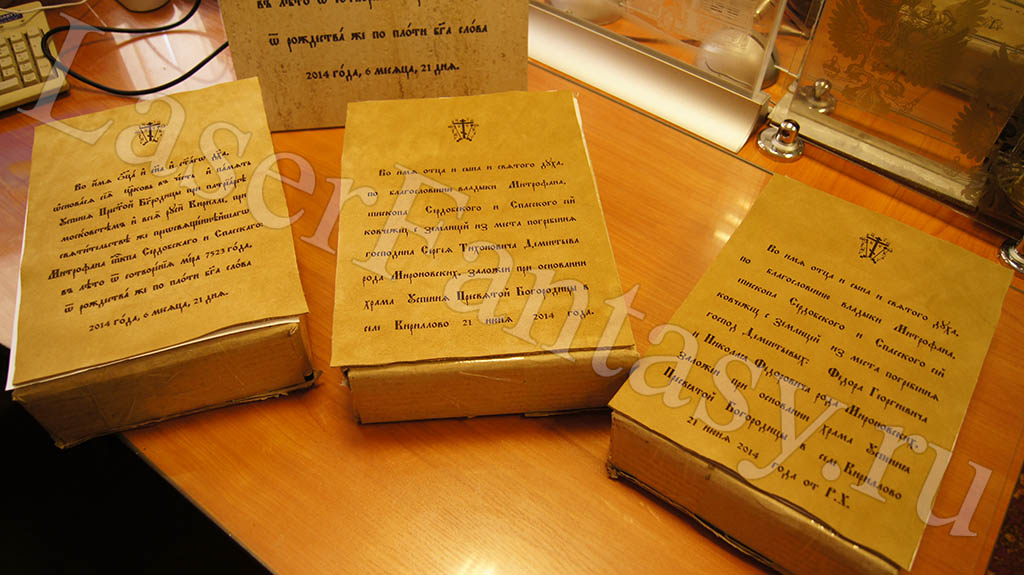 въ лѣто ѿ сотворен
ѿ рождества же по плоти бг҃а слова
2014 го́да, 6 месяца, 21 дня.
Во и́мя ѻц҃а и҆ сн҃а и҆ ст҃а́гѡ дх҃а.
ѡснова́ся сїѧ̀ це́рковь въ че́сть и҆ па́мять
Успения Прест҃о́й Бг҃оро́дицы при патрїа́рсѣ
моско́встѣмъ и҆ всеѧ̀ рꙋсі́и Кири́ллѣ, при
святи́тельствѣ же преосвяще́ннѣйшагѡ
Митрофа́на є҆пⷭ҇кпа Сердо́бскагѡ и Спа́сскагѡ:
въ лѣ́то ѿ сотворе́нїя мі́ра 7523 го́да,
ѿ рождества́ же по пло́ти бг҃а сло́ва
2014 го́да, 6 месяца, 21 дня.
Во имя отца и сына и святого духа,
по благословении владыки Митрофана,
епископа Сердобского и Спасского сей
ковчежец с землицей из места погребения
господина Сергея Тихоновича Дементьева
рода Мироновских. Заложен при основании
храма Успения Пресвятой Богородицы в
селе Кириллово 21 июня 2014 года.
Во имя отца и сына и святого духа,
по благословении владыки Митрофана,
епископа Сердобского и Спасского сей
ковчежец с землицей из места погребения
господ Дементьевых: Федора Георгиевича
и Николая Федоровича рода Мироновских.
Заложен при основании храма Успения
Пресвятой Богородицы в селе Кириллово
21 июня 2014 года от Р.Х.
LaserFantasy.ru